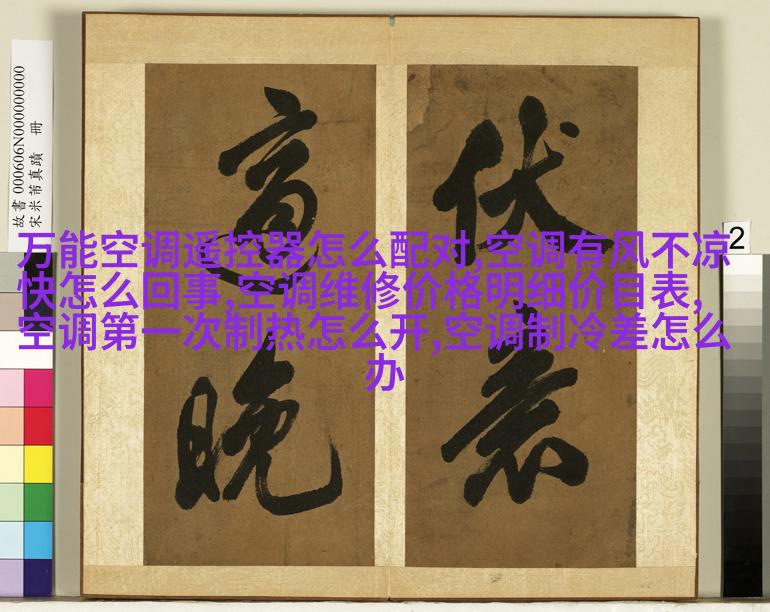 故書 000606N000000000
宋米芾真蹟 冊
2
万能空调遥控器怎么配对,空调有风不凉
快怎么回事,空调维修价格明细价目表,
空调第一次制热怎么开,空调制冷差怎么
办
伏
晚